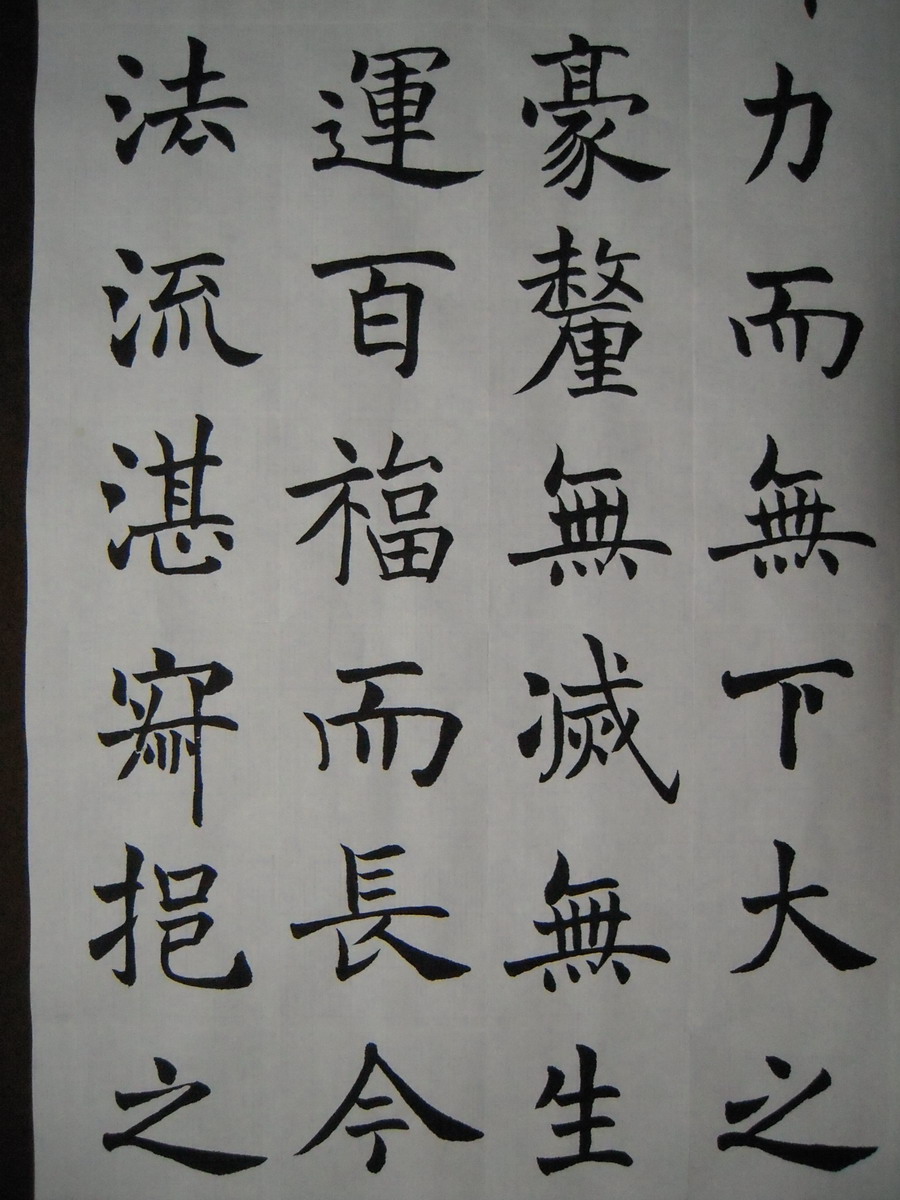 力而無下大之
豪釐無滅無生
運百福而長今
法流湛寂挹之